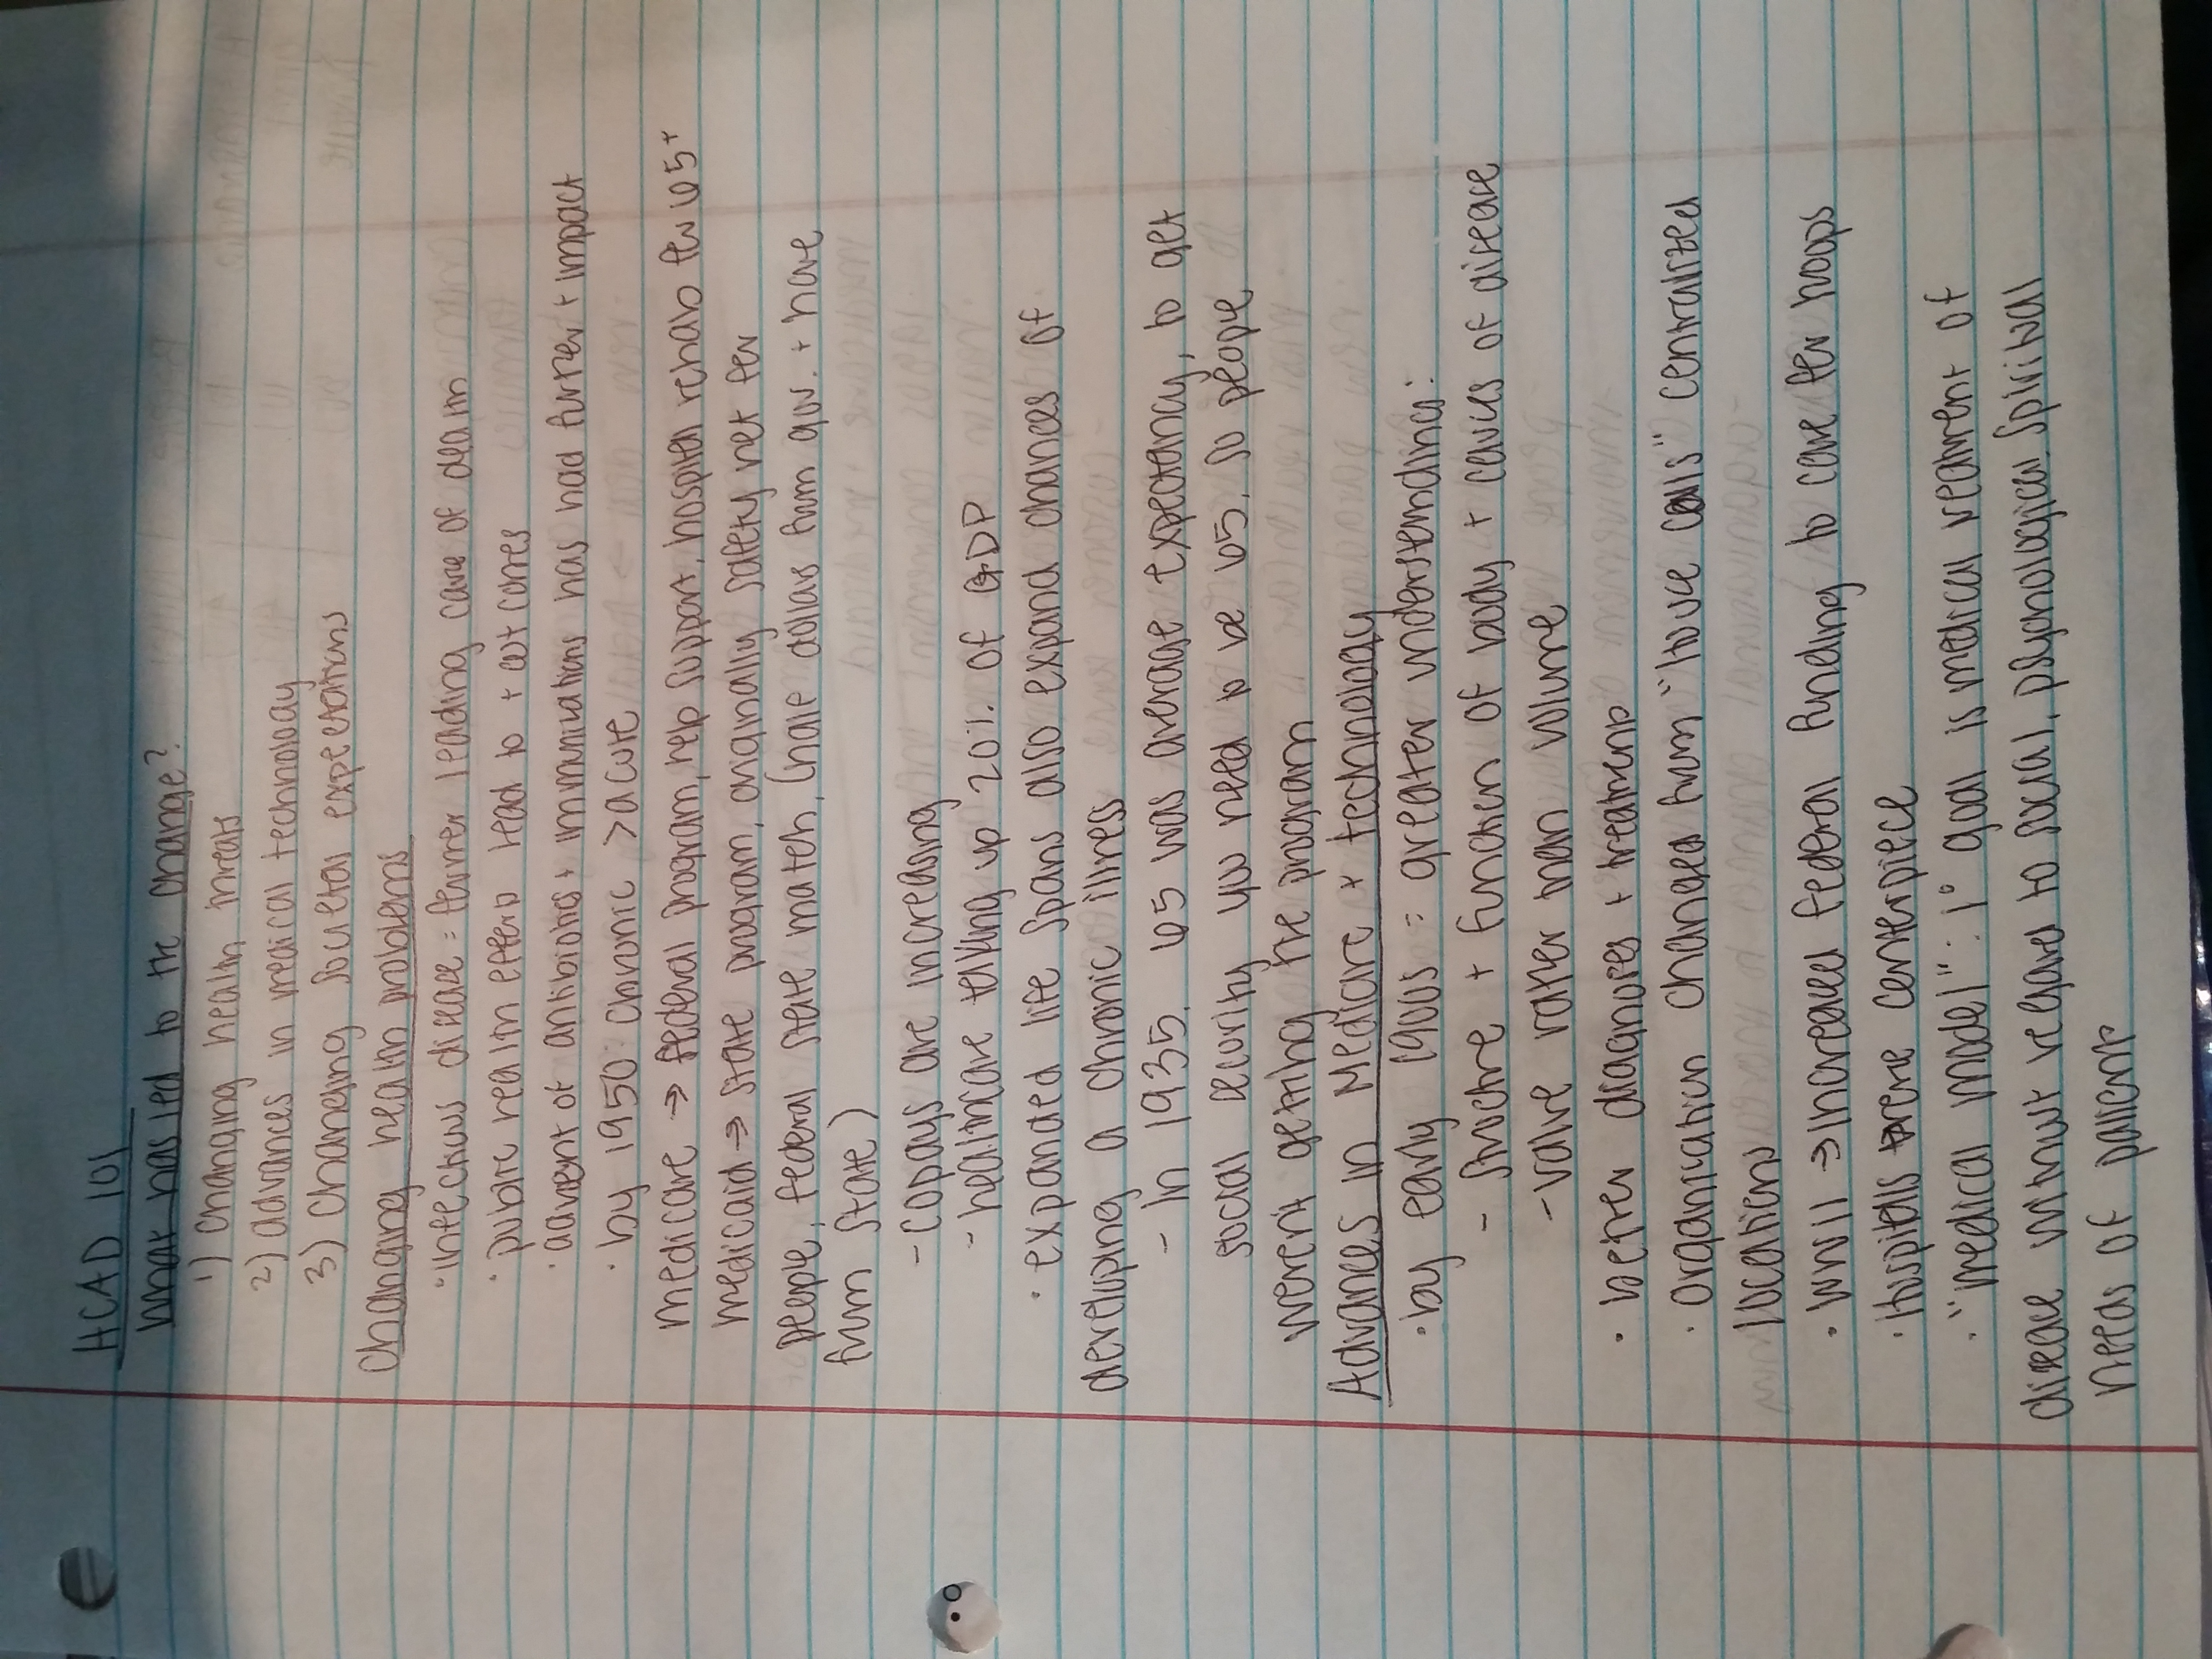 HCAD 101
What has led to the change?
1) Changing health threats
2) advances in medical technology
3) Changing societal expectations
Changing health problems
· infectious disease = former leading cause of death
· public health efforts lead to + outcomes
· advent of antibiotics + immunizations has had further + impact
· by 1950: chronic > acute
medicare → federal program, help support, hospital rehab for 65+
medicaid → state program, originally safety net for
people, federal state match, (half dollars from gov. + half
from state)
- copays are increasing
- healthcare taking up 20% of GDP
· expanded life spans also expand chances of
developing a chronic illness
- In 1935, 65 was average expectancy, to get
social security you need to be 65, so people
weren't getting the program
Advances in Medicare + technology
· by early 1900s = greater understanding:
- structure + function of body + causes of disease
- value rather than volume
· better diagnoses + treatments
· Organization changed from "house calls" centralized
locations
· WWII → increased federal funding to care for hosps
· Hospitals were centerpiece
· "medical model": 1° goal is medical treatment of
disease without regard to social, psychological, spiritual
needs of patients